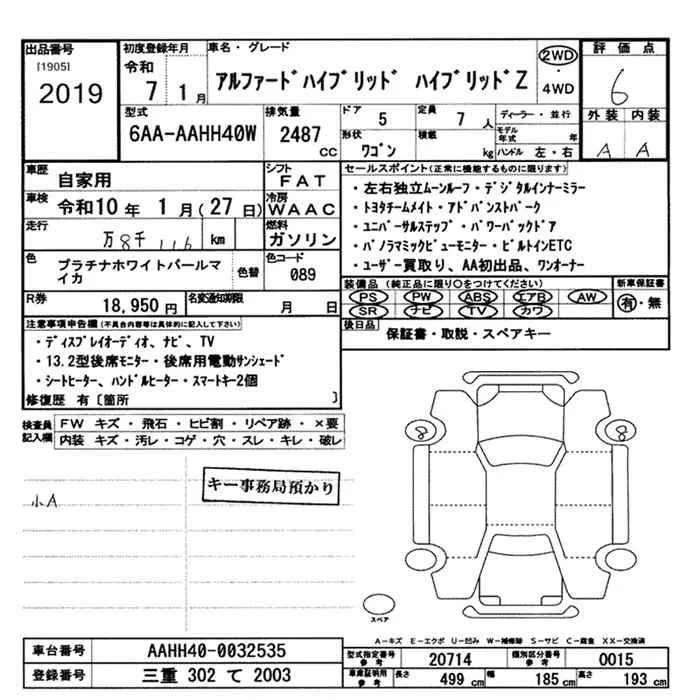 出品番号
[1905]
2019
初度登録年月
令和
7 1月
車名・グレード
アルファードハイブリッド ハイブリッドZ
2WD
・
4WD
評価点
6
外装 内装
A A
型式
6AA-AAHH40W
排気量
2487
CC
ドア
5
形状
ワゴン
定員
7 人
積載
kg
ディーラー・並行
モデル
年式 年
ハンドル 左・右
車歴
自家用
シフト
FAT
車検
令和10年 1月(27日)
冷房
WAAC
走行
万8千116 km
燃料
ガソリン
色
プラチナホワイトパールマ
イカ
色替
色コード
089
R券
18,950 円
名変通知期限
月 日
セールスポイント(正常に機能するものに限ります)
・左右独立ムーンルーフ・デジタルインナーミラー
・トヨタチームメイト・アドバンストパーク
・ユニバーサルステップ・パワーバックドア
・パノラミックビューモニター・ビルトインETC
・ユーザー買取り、AA初出品、ワンオーナー
装備品(純正品に限り〇をつけてください)
PS PW ABS エアB AW
SR ナビ TV カワ
新車保証書
有・無
後日品
保証書・取説・スペアキー
注意事項申告欄(不具合内容等は具体的に記入して下さい)
・ディスプレイオーディオ、ナビ、TV
・13.2型後席モニター・後席用電動サンシェード
・シートヒーター、ハンドルヒーター・スマートキー2個
修復歴 有〔箇所 〕
検査員
記入欄
FW キズ・飛石・ヒビ割・リペア跡・×要
内装 キズ・汚レ・コゲ・穴・スレ・キレ・破レ
キー事務局預かり
小A
スペア
A−キズ E−エクボ U−凹み W−補修跡 S−サビ C−腐食 XX−交換済
車台番号
AAHH40-0032535
登録番号
三重 302 て 2003
型式指定番号
参考
20714
類別区分番号
参考
0015
車庫証明用
参考
長さ 499 cm
幅 185 cm
高さ 193 cm